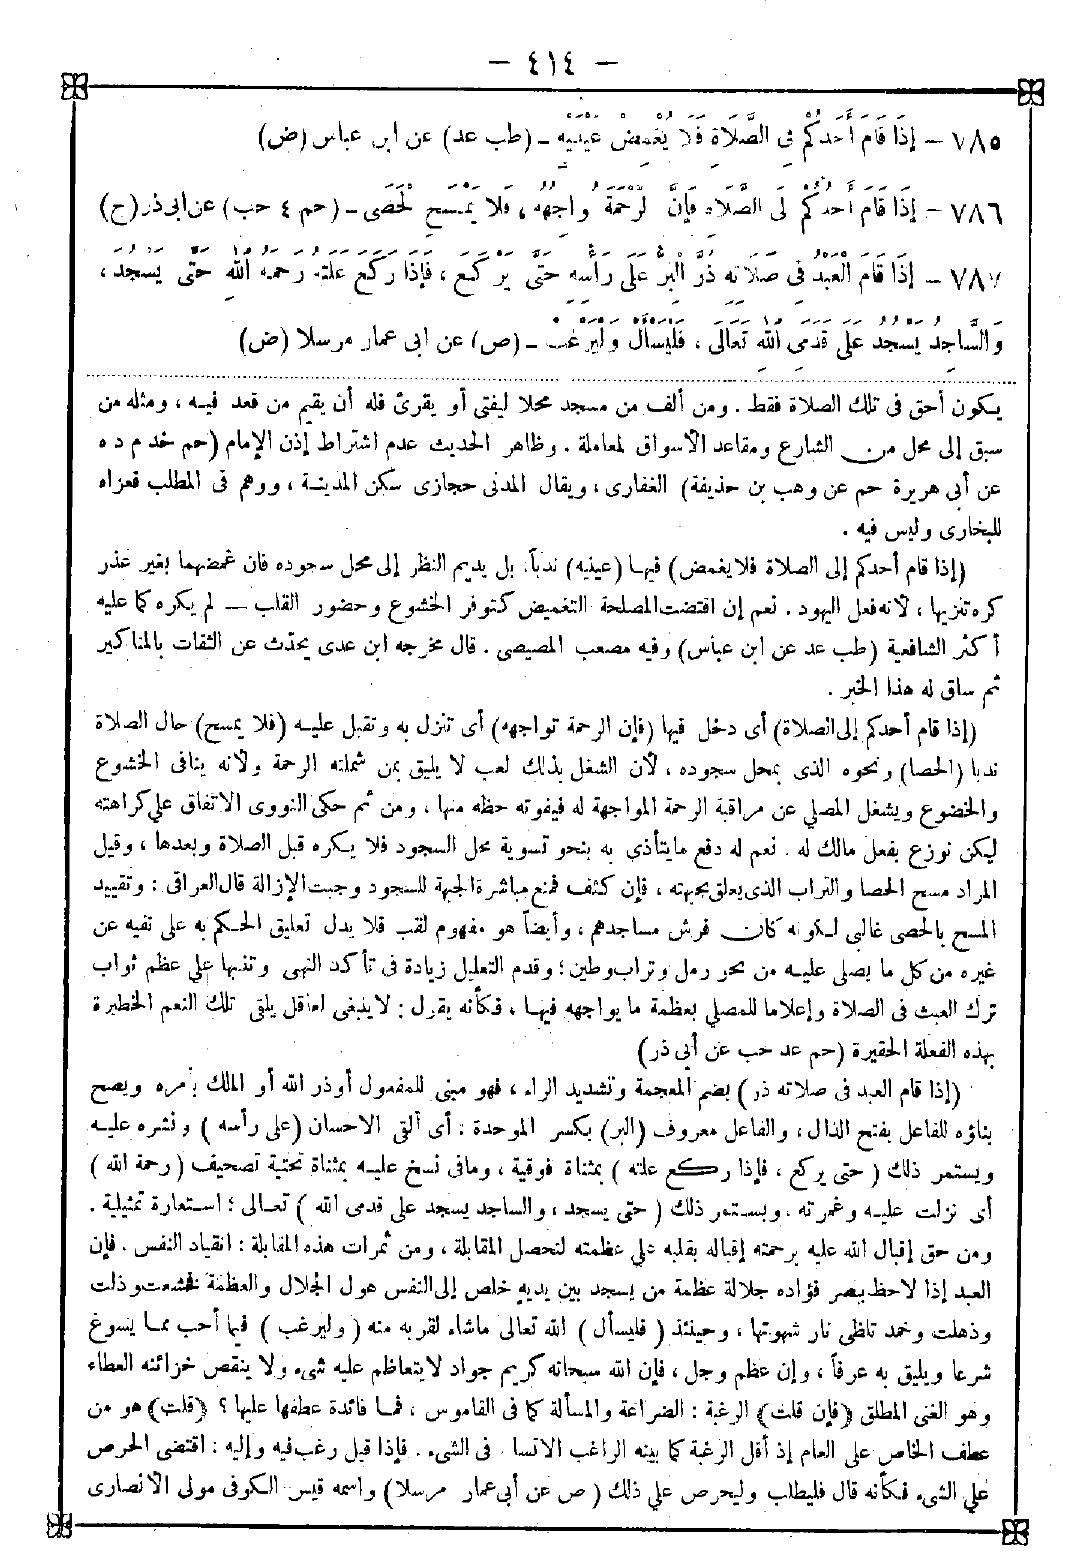 — ٤١٤ —
٧٨٥ — إِذَا قَامَ أَحَدُكُمْ فِي الصَّلَاةِ فَلَا يُغْمِضْ عَيْنَيْهِ - (طب عد) عن ابن عباس (ض)
٧٨٦ — إِذَا قَامَ أَحَدُكُمْ إِلَى الصَّلَاةِ فَإِنَّ الرَّحْمَةَ تُوَاجِهُهُ، فَلَا يَمْسَحِ الْحَصَى - (حم ٤ حب) عن ابى ذر (ح)
٧٨٧ — إِذَا قَامَ الْعَبْدُ فِي صَلَاتِهِ ذُرَّ الْبِرُّ عَلَى رَأْسِهِ حَتَّى يَرْكَعَ، فَإِذَا رَكَعَ عَلَتْهُ رَحْمَةُ اللهِ حَتَّى يَسْجُدَ،
وَالسَّاجِدُ يَسْجُدُ عَلَى قَدَمَىِ اللهِ تَعَالَى، فَلْيَسْأَلْ وَلْيَرْغَبْ - (ص) عن ابى عمار مرسلا (ض)
يكون أحق فى تلك الصلاة فقط . ومن ألف من مسجد محلا ليفتى أو يقرئ فله أن يقيم من قعد فيه ، ومثله من
سبق إلى محل من الشارع ومقاعد الأسواق لمعاملة . وظاهر الحديث عدم اشتراط إذن الإمام (حم خد م د ه
عن أبى هريرة حم عن وهب بن حذيفة) الغفارى ، ويقال المدنى حجازى سكن المدينة ، ووهم فى المطلب فعزاه
للبخارى وليس فيه .
(إذا قام أحدكم إلى الصلاة فلا يغمض) فيها (عينيه) ندباً. بل يديم النظر إلى محل سجوده فان غمضهما بغير عذر
كره تنزيها ، لأنه فعل اليهود . نعم إن اقتضت المصلحة التغميض كتوفر الخشوع وحضور القلب — لم يكره كما عليه
أكثر الشافعية (طب عد عن ابن عباس) وفيه مصعب المصيصى . قال مخرجه ابن عدى يحدث عن الثقات بالمناكير
ثم ساق له هذا الخبر .
(إذا قام أحدكم إلى الصلاة) أى دخل فيها (فإن الرحمة تواجهه) أى تنزل به وتقبل عليه (فلا يمسح) حال الصلاة
ندبا (الحصا) ونحوه الذى بمحل سجوده ، لأن الشغل بذلك لعب لا يليق بمن شملته الرحمة ولأنه ينافى الخشوع
والخضوع ويشغل المصلى عن مراقبة الرحمة المواجهة له فيفوته حظه منها ، ومن ثم حكى النووى الاتفاق على كراهته
ليكن نوزع بفعل مالك له . نعم له دفع ما يتأذى به بنحو تسوية محل السجود فلا يكره قبل الصلاة وبعدها ، وقيل
المراد مسح الحصا والتراب الذى يعلق بجبهته ، فإن كثف فمنع مباشرة الجبهة للسجود وجبت الإزالة قال العراقى : وتقييد
المسح بالحصى غالبى لكونه كان فرش مساجدهم ، وأيضاً هو مفهوم لقب فلا يدل تعليق الحكم به على نفيه عن
غيره من كل ما يصلى عليه من نحو رمل وتراب وطين ؛ وقدم التعليل زيادة فى تأكد النهى وتنبيها على عظم ثواب
ترك العبث فى الصلاة وإعلاما للمصلى بعظمة ما يواجهه فيها ، فكأنه يقول : لا ينبغى لعاقل يلقى تلك النعم الخطيرة
بهذه الفعلة الحقيرة (حم عد حب عن أبى ذر)
(إذا قام العبد فى صلاته ذر) بضم المعجمة وتشديد الراء ، فهو مبنى للمفعول أو ذر الله أو الملك بأمره ويصح
بناؤه للفاعل بفتح الذال ، والفاعل معروف (البر) بكسر الموحدة : أى ألقى الاحسان (على رأسه ) ونشره عليه
ويستمر ذلك ( حتى يركع ، فإذا ركع علته ) بمثناة فوقية ، وما فى نسخ عليه بمثناة تحتية تصحيف ( رحمة الله )
أى نزلت عليه وغمرته . ويستمر ذلك ( حتى يسجد ، والساجد يسجد على قدمى الله ) تعالى ؛ استعارة تمثيلية .
ومن حق إقبال الله عليه برحمته إقباله بقلبه على عظمته لتحصل المقابلة ، ومن ثمرات هذه المقابلة : انقياد النفس . فإن
العبد إذا لاحظ ببصر فؤاده جلالة عظمة من يسجد بين يديه خلص إلى النفس هول الجلال والعظمة فخشعت وذلت
وذهلت وخمد تلظى نار شهوتها ، وحينئذ ( فليسأل ) الله تعالى ما شاء لقربه منه ( وليرغب ) فيما أحب مما يسوغ
شرعا ويليق به عرفاً ، وإن عظم وجل ، فإن الله سبحانه كريم جواد لا يتعاظم عليه شىء ولا ينقص خزائنه العطاء
وهو الغنى المطلق (فإن قلت) الرغبة : الضراعة والمسألة كما فى القاموس ، فما فائدة عطفها عليها ؟ (قلت) هو من
عطف الخاص على العام إذ أقل الرغبة كما بينه الراغب الاتساع فى الشىء . فإذا قيل رغب فيه وإليه : اقتضى الحرص
على الشىء فكأنه قال فليطلب وليحرص على ذلك ( ص عن أبى عمار مرسلا) واسمه قيس الكوفى مولى الأنصارى